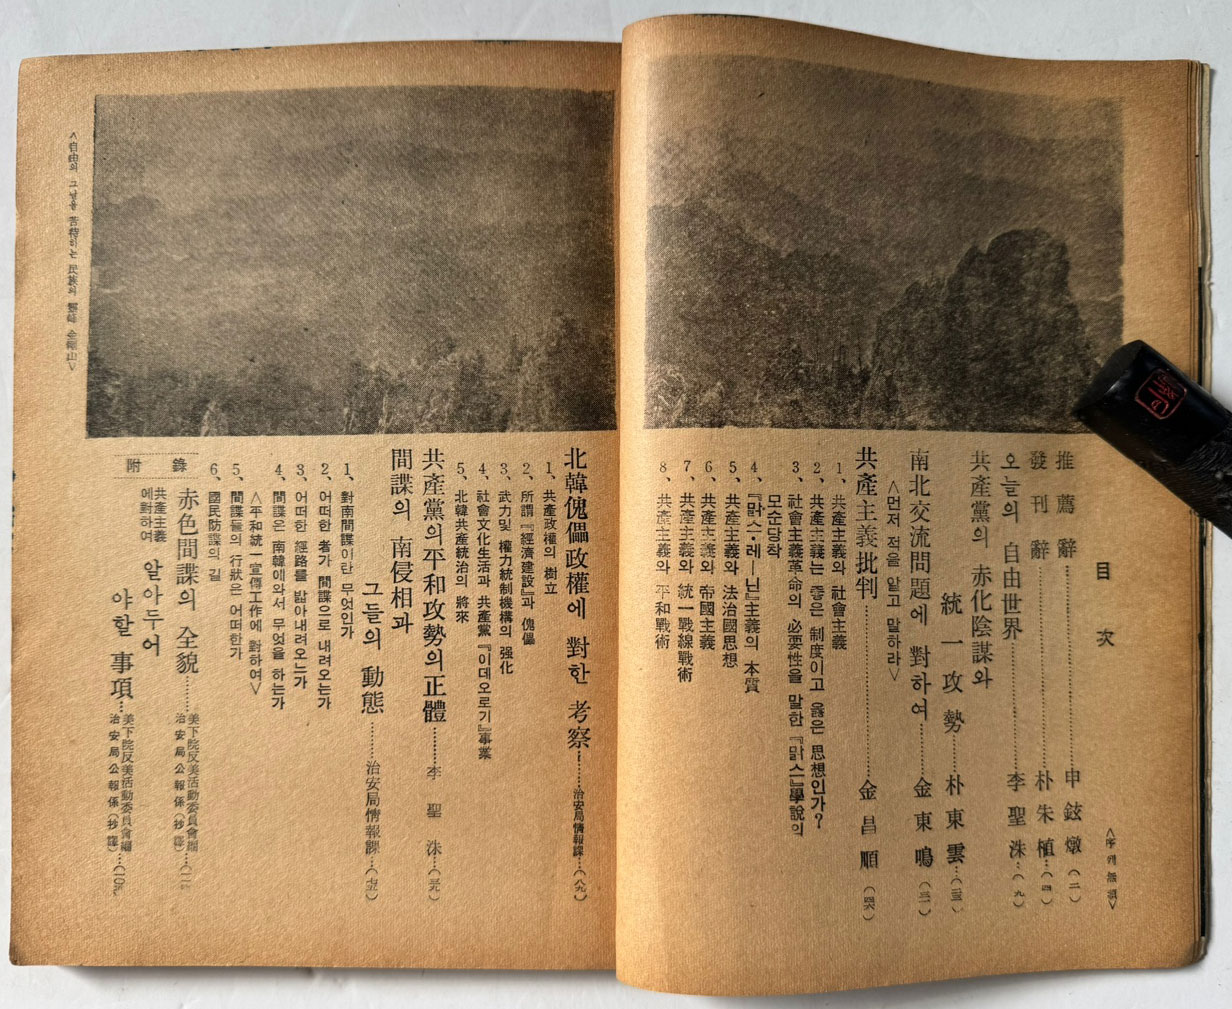 目 次
<序列無順>
推薦辭……申鉉燉…(二)
發刊辭……朴朱植…(四)
오늘의 自由世界……李聖洙…(九)
共產黨의 赤化陰謀와
統一攻勢……朴東雲…
南北交流問題에 對하여……金東鳴
<먼저 적을 알고 말하라>
共產主義批判……金昌順
1、共產主義와 社會主義
2、共產主義는 좋은 制度이고 옳은 思想인가?
3、社會主義革命의 必要性을 말한『맑스』學說의
모순당착
4、『맑스・레―닌』主義의 本質
5、共產主義와 法治國思想
6、共產主義와 帝國主義
7、共產主義와 統一戰線戰術
8、共產主義와 平和戰術
北韓傀儡政權에 對한 考察……治安局情報課…(八九)
1、共產政權의 樹立
2、所謂『經濟建設』과 傀儡
3、武力및 權力統制機構의 强化
4、社會文化生活과 共產黨『이데오로기』事業
5、北韓共產統治의 將來
共產黨의 平和攻勢의 正體……李聖洙…
間諜의 南侵相과
그들의 動態……治安局情報課…
1、對南間諜이란 무엇인가
2、어떠한 者가 間諜으로 내려오는가
3、어떠한 經路를 밟아내려오는가
4、間諜은 南韓에와서 무엇을 하는가
<平和統一宣傳工作에 對하여>
5、間諜들의 行狀은 어떠한가
6、國民防諜의 길
附 錄
赤色間諜의 全貌……美下院反美活動委員會編
治安局公報係(抄譯)
共產主義
에對하여 알아두어
야할 事項…美下院反美活動委員會編
治安局公報係(抄譯)
<自由의 그날을 苦待하는 民族의 靈峰 金剛山>